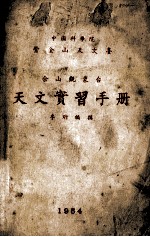 中國科學院
紫金山天文臺
佘山觀象台
天文實習手册
李珩編譯
1954